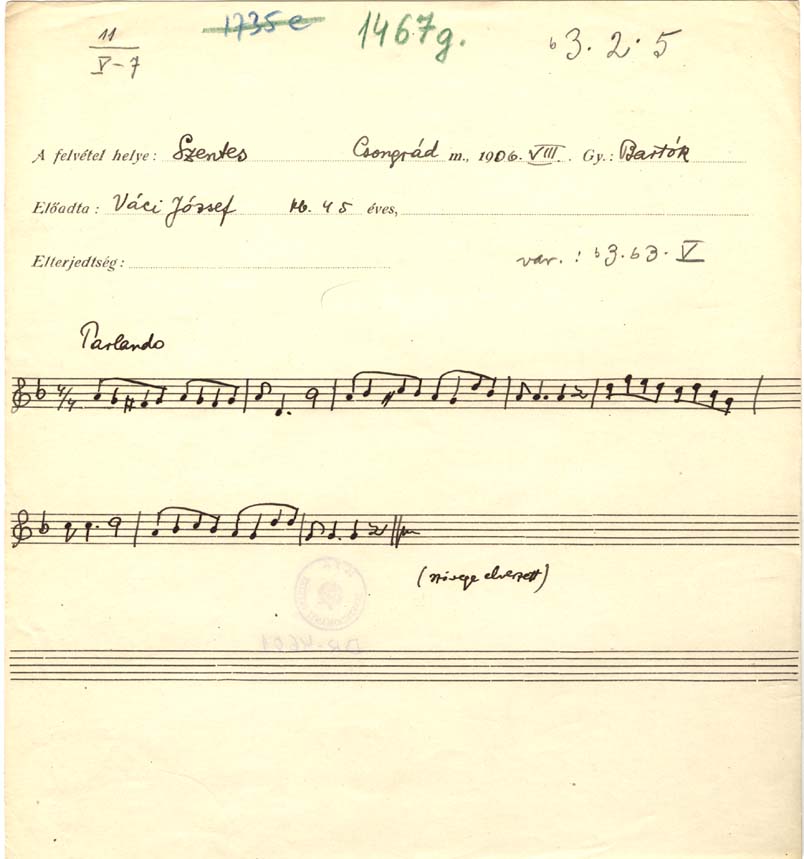 11 1735 e 1467g. b3. 2. 5
V-7
A felvétel helye: Szentes Csongrád m., 1906. VIII. Gy.: Bartók
Előadta: Váci József 45 éves,
Elterjedtség: var.: b3. b3. V
Parlando
4/4
(szövege elveszett)